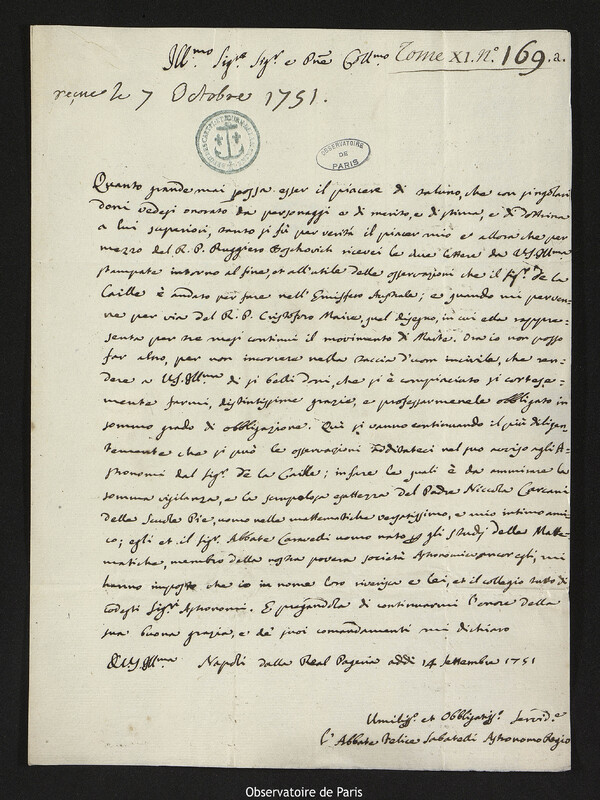 Ill.mo Sig.re Sig.r e Pñe Coll.mo Tome XI. N.º 169.a.
reçue le 7 Octobre 1751.
OBSERVATOIRE
DE
PARIS
Quanto grande mai possa esser il piacere di taluno, che con singolari
doni vedesi onorato da personaggi e di merito, e di stima, e di dottrina
a lui superiori, tanto si fù per verità il piacer mio e allora che per
mezzo del R. P. Ruggiero Boschovich ricevei le due lettere da V.S. Ill.ma
stampate intorno al fine, et all'utile delle osservazioni che il Sig.r de la
Caille è andato per fare nell'Emisfero Australe; e quando mi perven-
ne per via del R. P. Cristoforo Maire, quel disegno, in cui ella rappre-
senta per tre mesi continui il movimento di Marte. Ora io non posso
far altro, per non incorrere nella taccia d'uom incivile, che ren-
dere a V.S. Ill.ma di si belli doni, che si è compiaciuto si cortese-
mente farmi, distintissime grazie, e professarmenele obbligato in
sommo grado di obbligazione. Quì si vanno continuando il più diligen-
temente che si può le osservazioni additateci nel suo avviso agli A-
stronomi dal Sig.r de la Caille; in fare le quali è da ammirare la
somma vigilanza, e la scrupolosa esattezza del Padre Niccola Carcani
delle Scuole Pie, uomo nelle mattematiche versatissimo, e mio intimo ami-
co; egli et il Sig.r Abbate Caravelli uomo nato gli studj delle Matte-
matiche, membro della nostra povera società Astronomica ancor egli, mi
hanno imposto che io in nome loro riverisca e lei, et il collegio tutto di
codesti Sig.ri Astronomi. E pregandola di continuarmi l'onore della
sua buona grazia, e de' suoi comandamenti mi dichiaro
Di V.S. Ill.ma Napoli dalla Real Pageria addi 14 Settembre 1751
Umiliss.º et Obbligatiss.º Servid.e
l'Abbate Felice Sabatelli Astronomo Regio
Observatoire de Paris